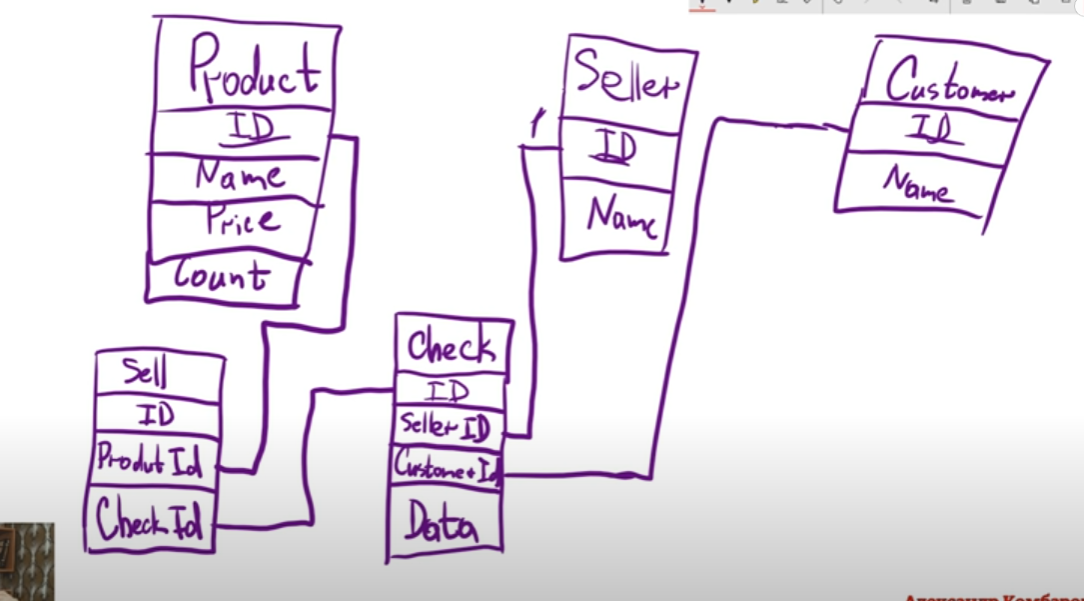 Product
ID
Name
Price
Count
Seller
ID
Name
Customer
ID
Name
Sell
ID
Produt Id
Check Id
Check
ID
Seller ID
Customer Id
Data